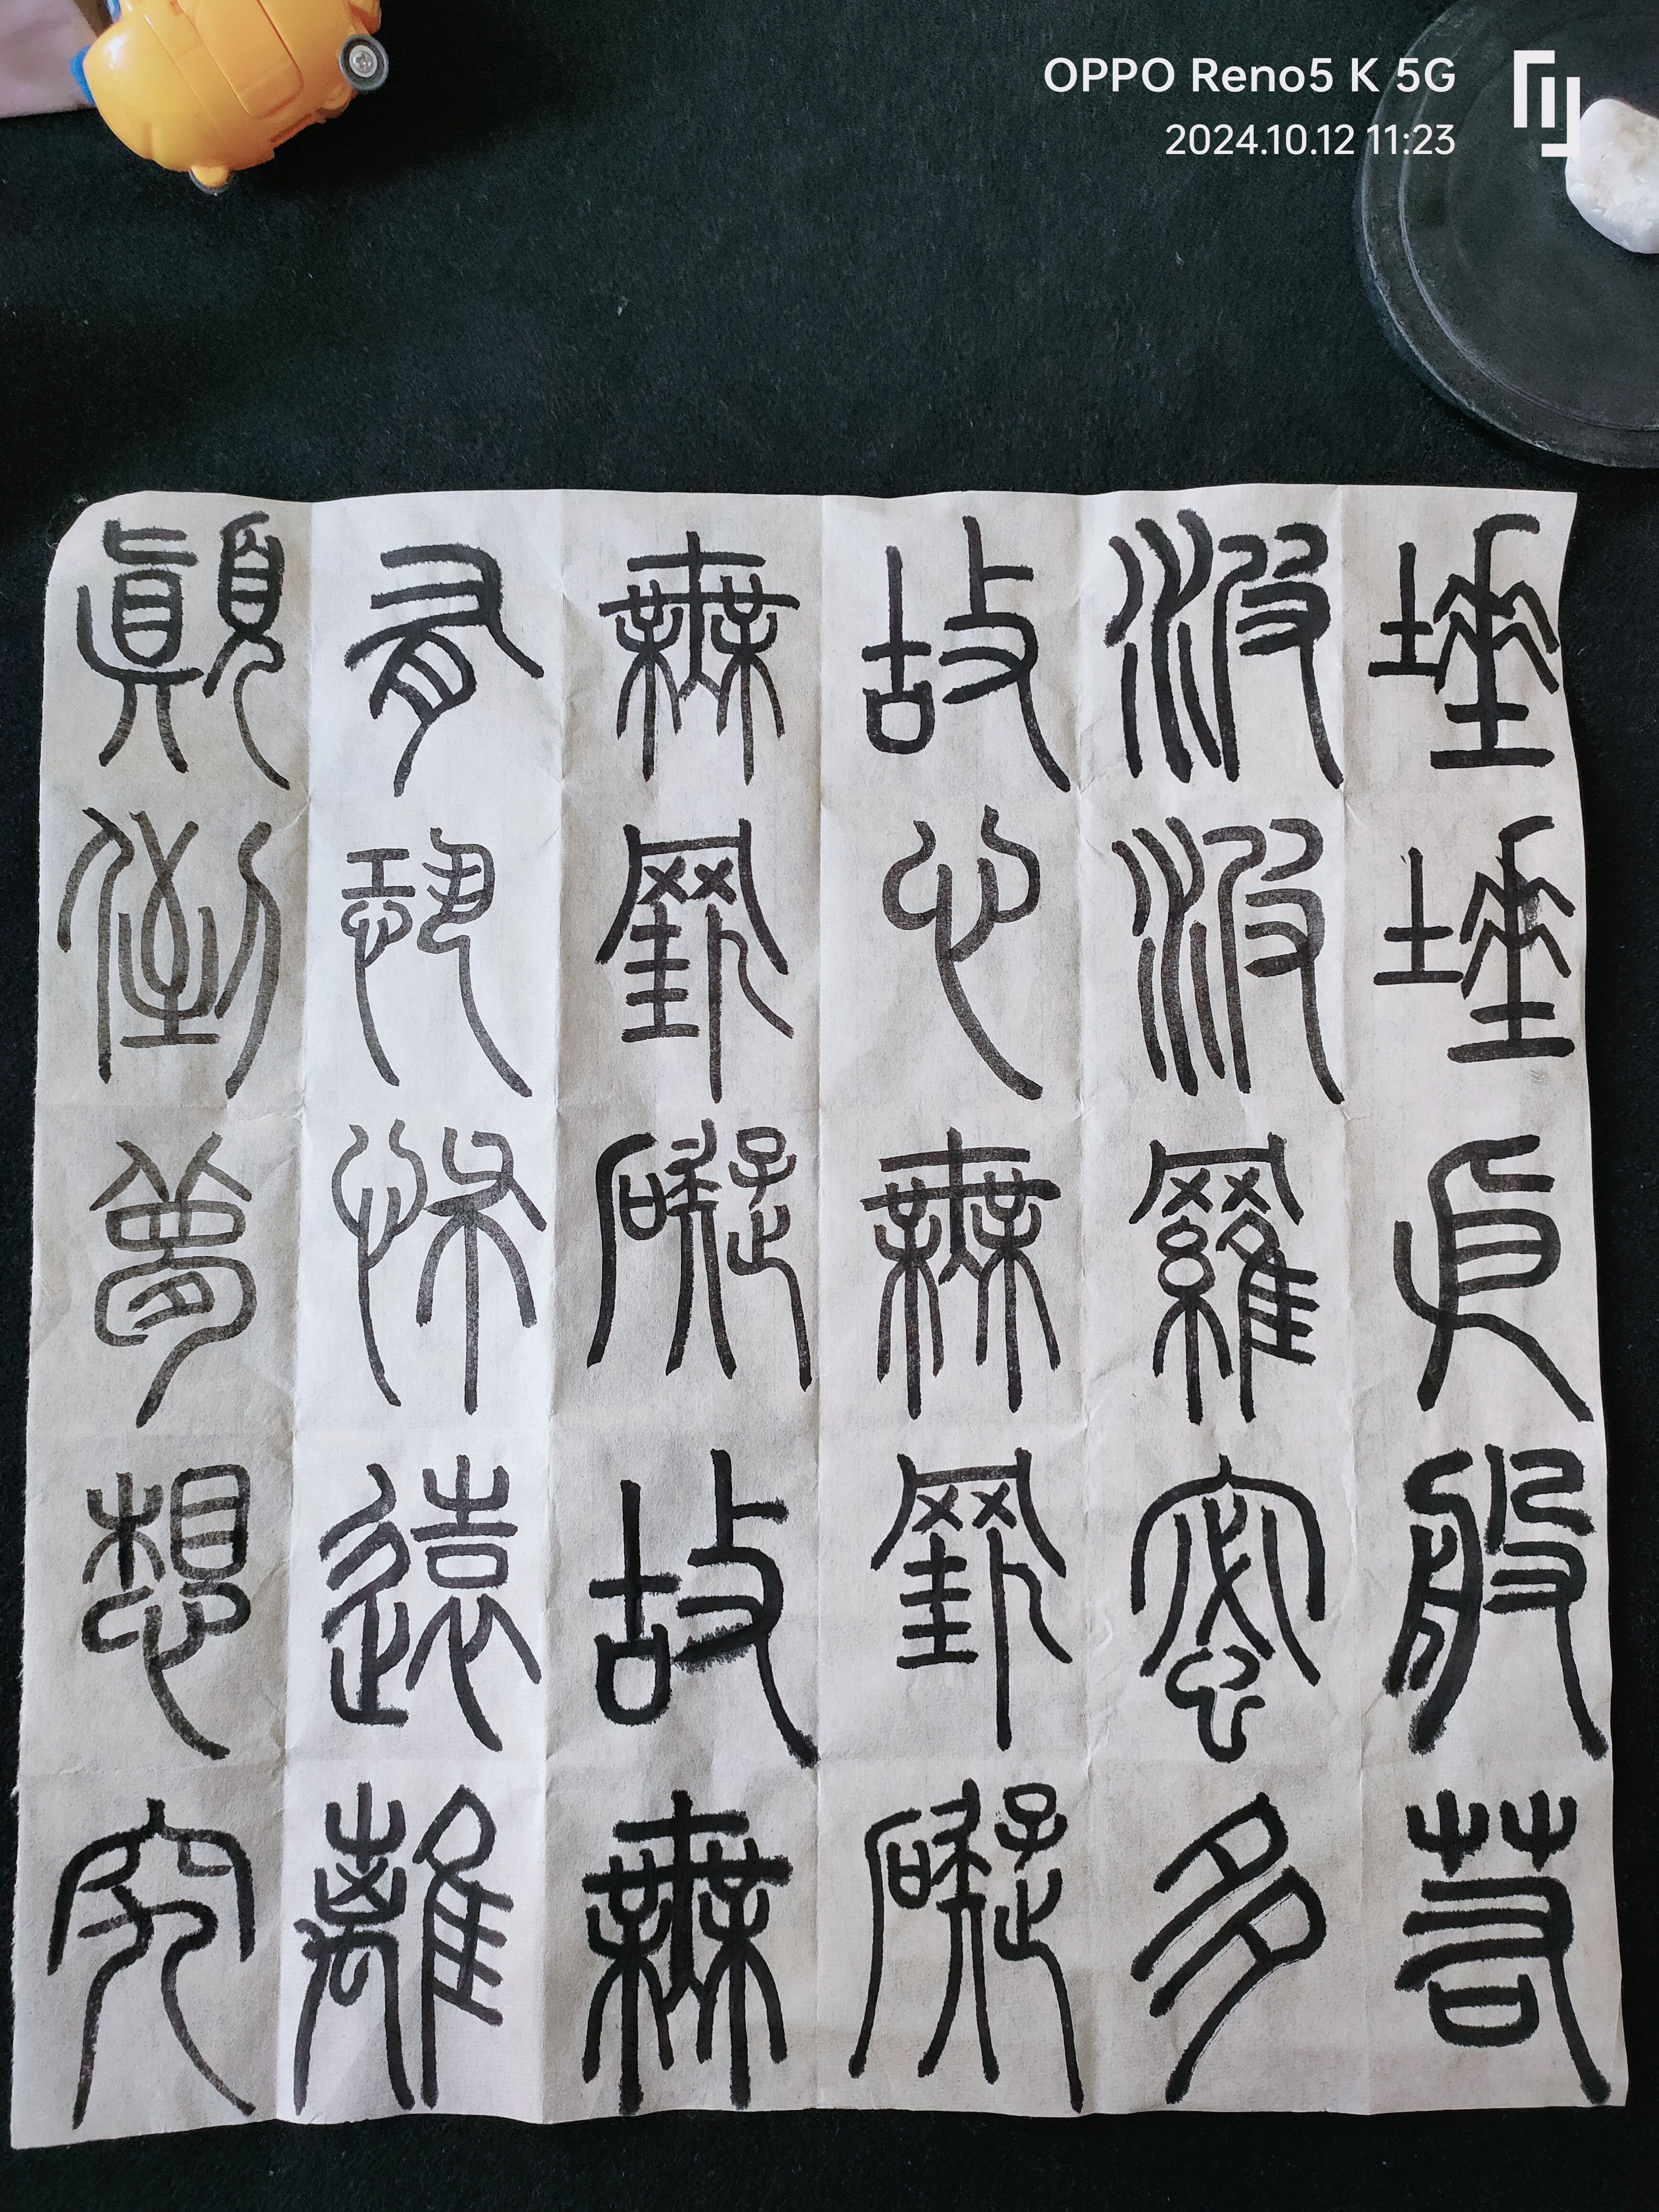 埵埵依般若
波波羅蜜多
故心無罣礙
無罣礙故無
有恐怖遠離
顛倒夢想究
OPPO Reno5 K 5G
2024.10.12 11:23